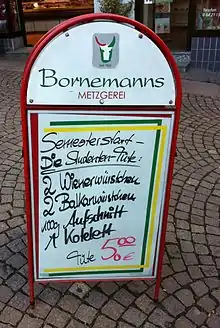 Bornemanns
METZGEREI
Semesterstart-
Die Studenten-Tüte:
2 Wienerwürstchen
2 Balkanwürstchen
100g Aufschnitt
1 Kotelett
Tüte 5,00 €